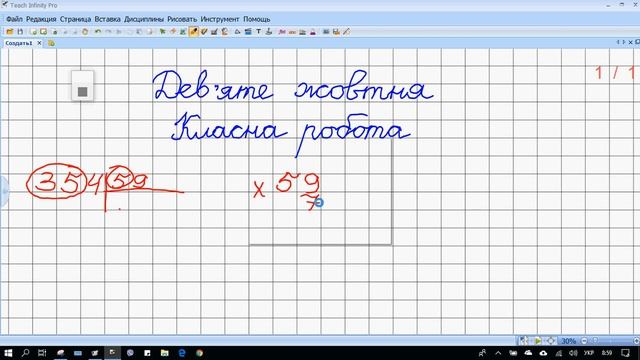 Teach Infinity Pro
Файл Редакция Страница Вставка Дисциплины Рисовать Инструмент Помощь
Создать1
1 / 1
Дев'яте жовтня
Класна робота
354 59
х 59
7
30%
УКР 8:59